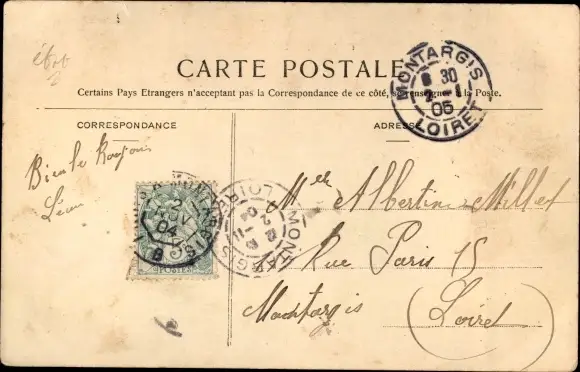 CARTE POSTALE
Certains Pays Etrangers n'acceptent pas la Correspondance de ce côté, se renseigner à la Poste.
CORRESPONDANCE
ADRESSE
Bien le Bonjour
Léon
Melle Albertine Millet
Rue Paris 15
Montargis (Loiret)
MONTARGIS
8 30
05
LOIRET
2
NOV
04
MONTARGIS
LOIRET
POSTES